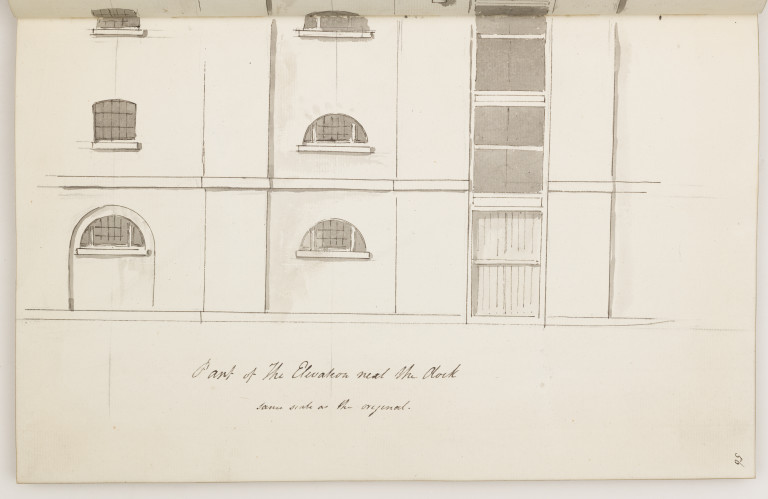 Part of The Elevation next the dock
same scale as the original.